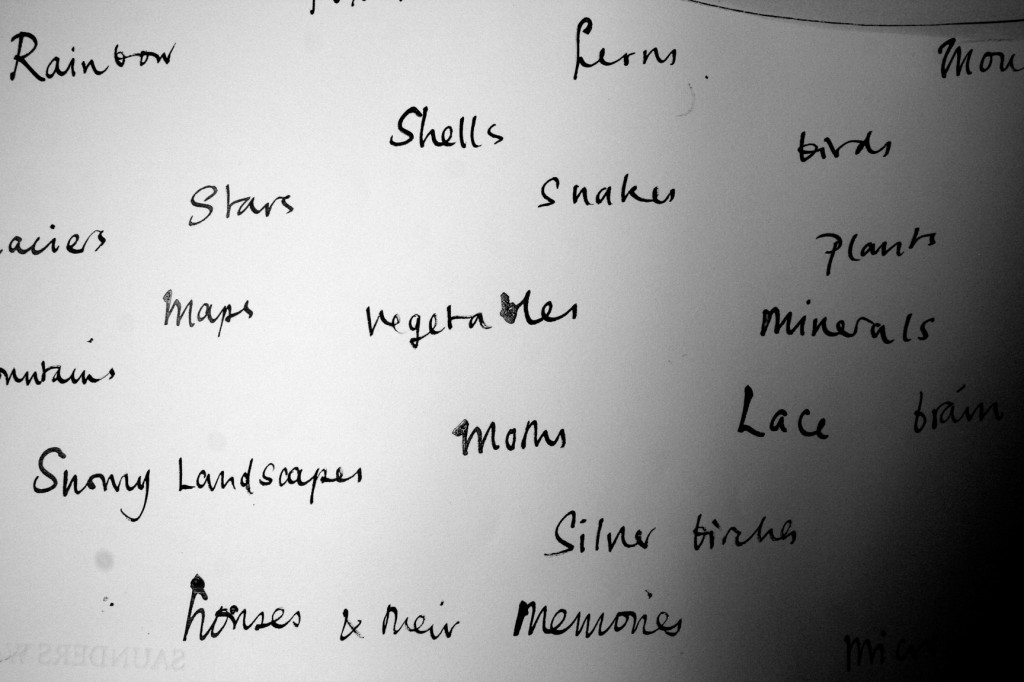 Rainbow
ferns
Mou
Shells
birds
Stars
Snakes
laciers
Plants
Maps
vegetables
Minerals
ountains
Lace
brain
Moths
Snowy Landscapes
Silver birches
houses & their Memories
SAUNDERS W